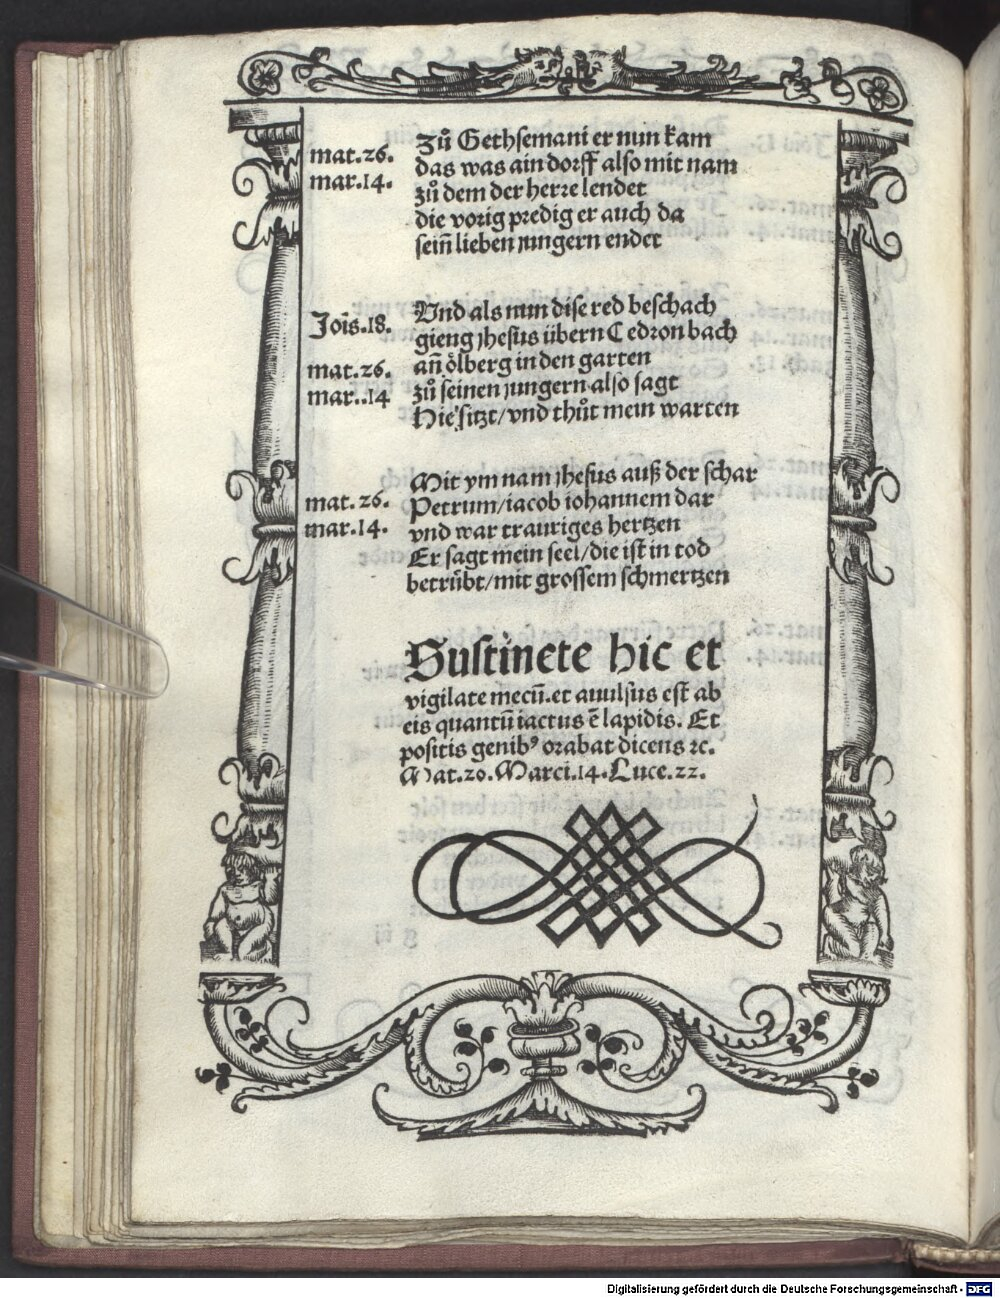 mat.26.
mar.14.
Zů Gethsemani er nun kam
das was ain dorff also mit nam
zů dem der herre lendet
die vorig predig er auch da
sein̄ lieben jungern endet
Joīs.18.
mat.26.
mar..14
Vnd als nun dise red beschach
gieng jhesus übern Cedron bach
an̄ ölberg in den garten
zů seinen jungern also sagt
Hie sitzt/vnd thůt mein warten
mat.26.
mar.14.
Mit ym nam jhesus auß der schar
Petrum/iacob iohannem dar
vnd war trauriges hertzen
Er sagt mein seel/die ist in tod
betrübt/mit grossem schmertzen
Sustinete hic et
vigilate mecū.et auulsus est ab
eis quantū iactus ē lapidis. Et
positis genibꝰ orabat dicens ⁊c.
Mat.20.Marci.14.Luce.22.
Digitalisierung gefördert durch die Deutsche Forschungsgemeinschaft - DFG